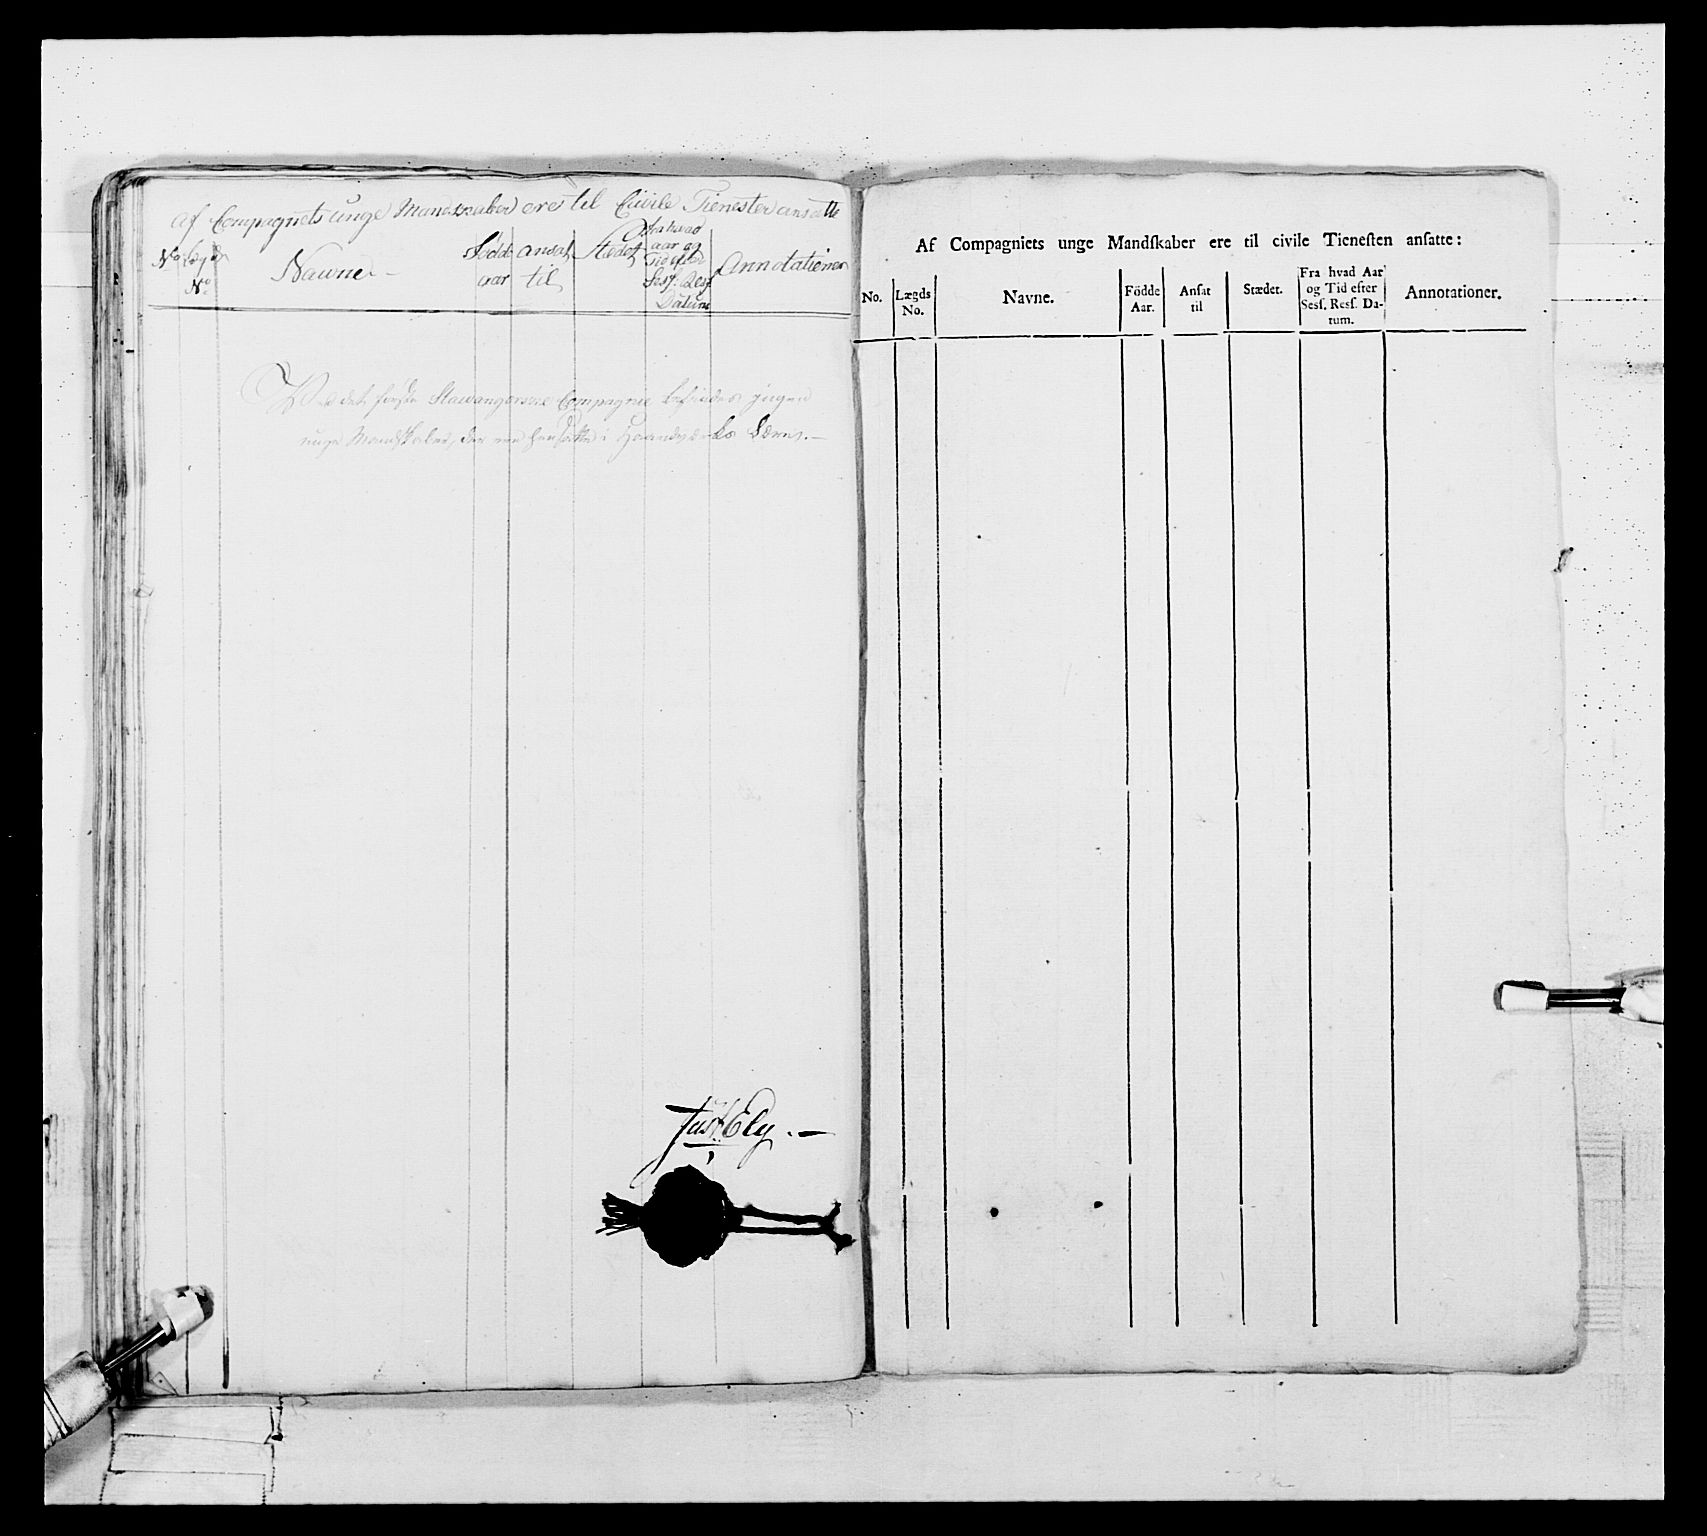 af Compagnets unge Mandskaber ere til Civile Tienester ansatte
No
Lægds
No
Nawne
Födde
aar
ansat
til
Stædet
Fra hvad
aar og
Tid efter
Sess: Ress
Datum
Annotationer
Ved det første Stawangerske Compagnie befindes ingen
unge Mandskaber, der ere hensatte i Haandverks Lære.
Just Ely.
Af Compagniets unge Mandſkaber ere til civile Tieneſten anſatte:
No.
Lægds
No.
Navne.
Födde
Aar.
Anſat
til
Stædet.
Fra hvad Aar
og Tid efter
Sesſ. Resſ. Da-
tum.
Annotationer.